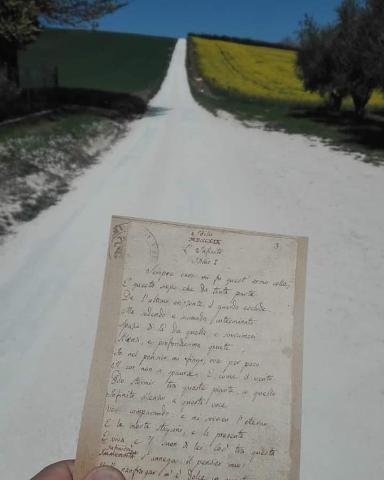 3.
L'Infinito
Idillio I
Sempre caro mi fu quest'ermo colle,
E questa siepe che da tanta parte
De l'ultimo orizzonte il guardo esclude.
Ma sedendo e mirando, interminato
Spazio di là da quella, e sovrumani
Silenzi, e profondissima quiete
Io nel pensier mi fingo, ove per poco
Il cor non si spaura. E come il vento
Odo stormir tra queste piante, io quello
Infinito silenzio a questa voce
Vo comparando: e mi sovvien l'eterno,
E le morte stagioni, e la presente
E viva, e 'l suon di lei. Così tra questa
s'annega il pensier mio:
E 'l naufragar m'è dolce in questo